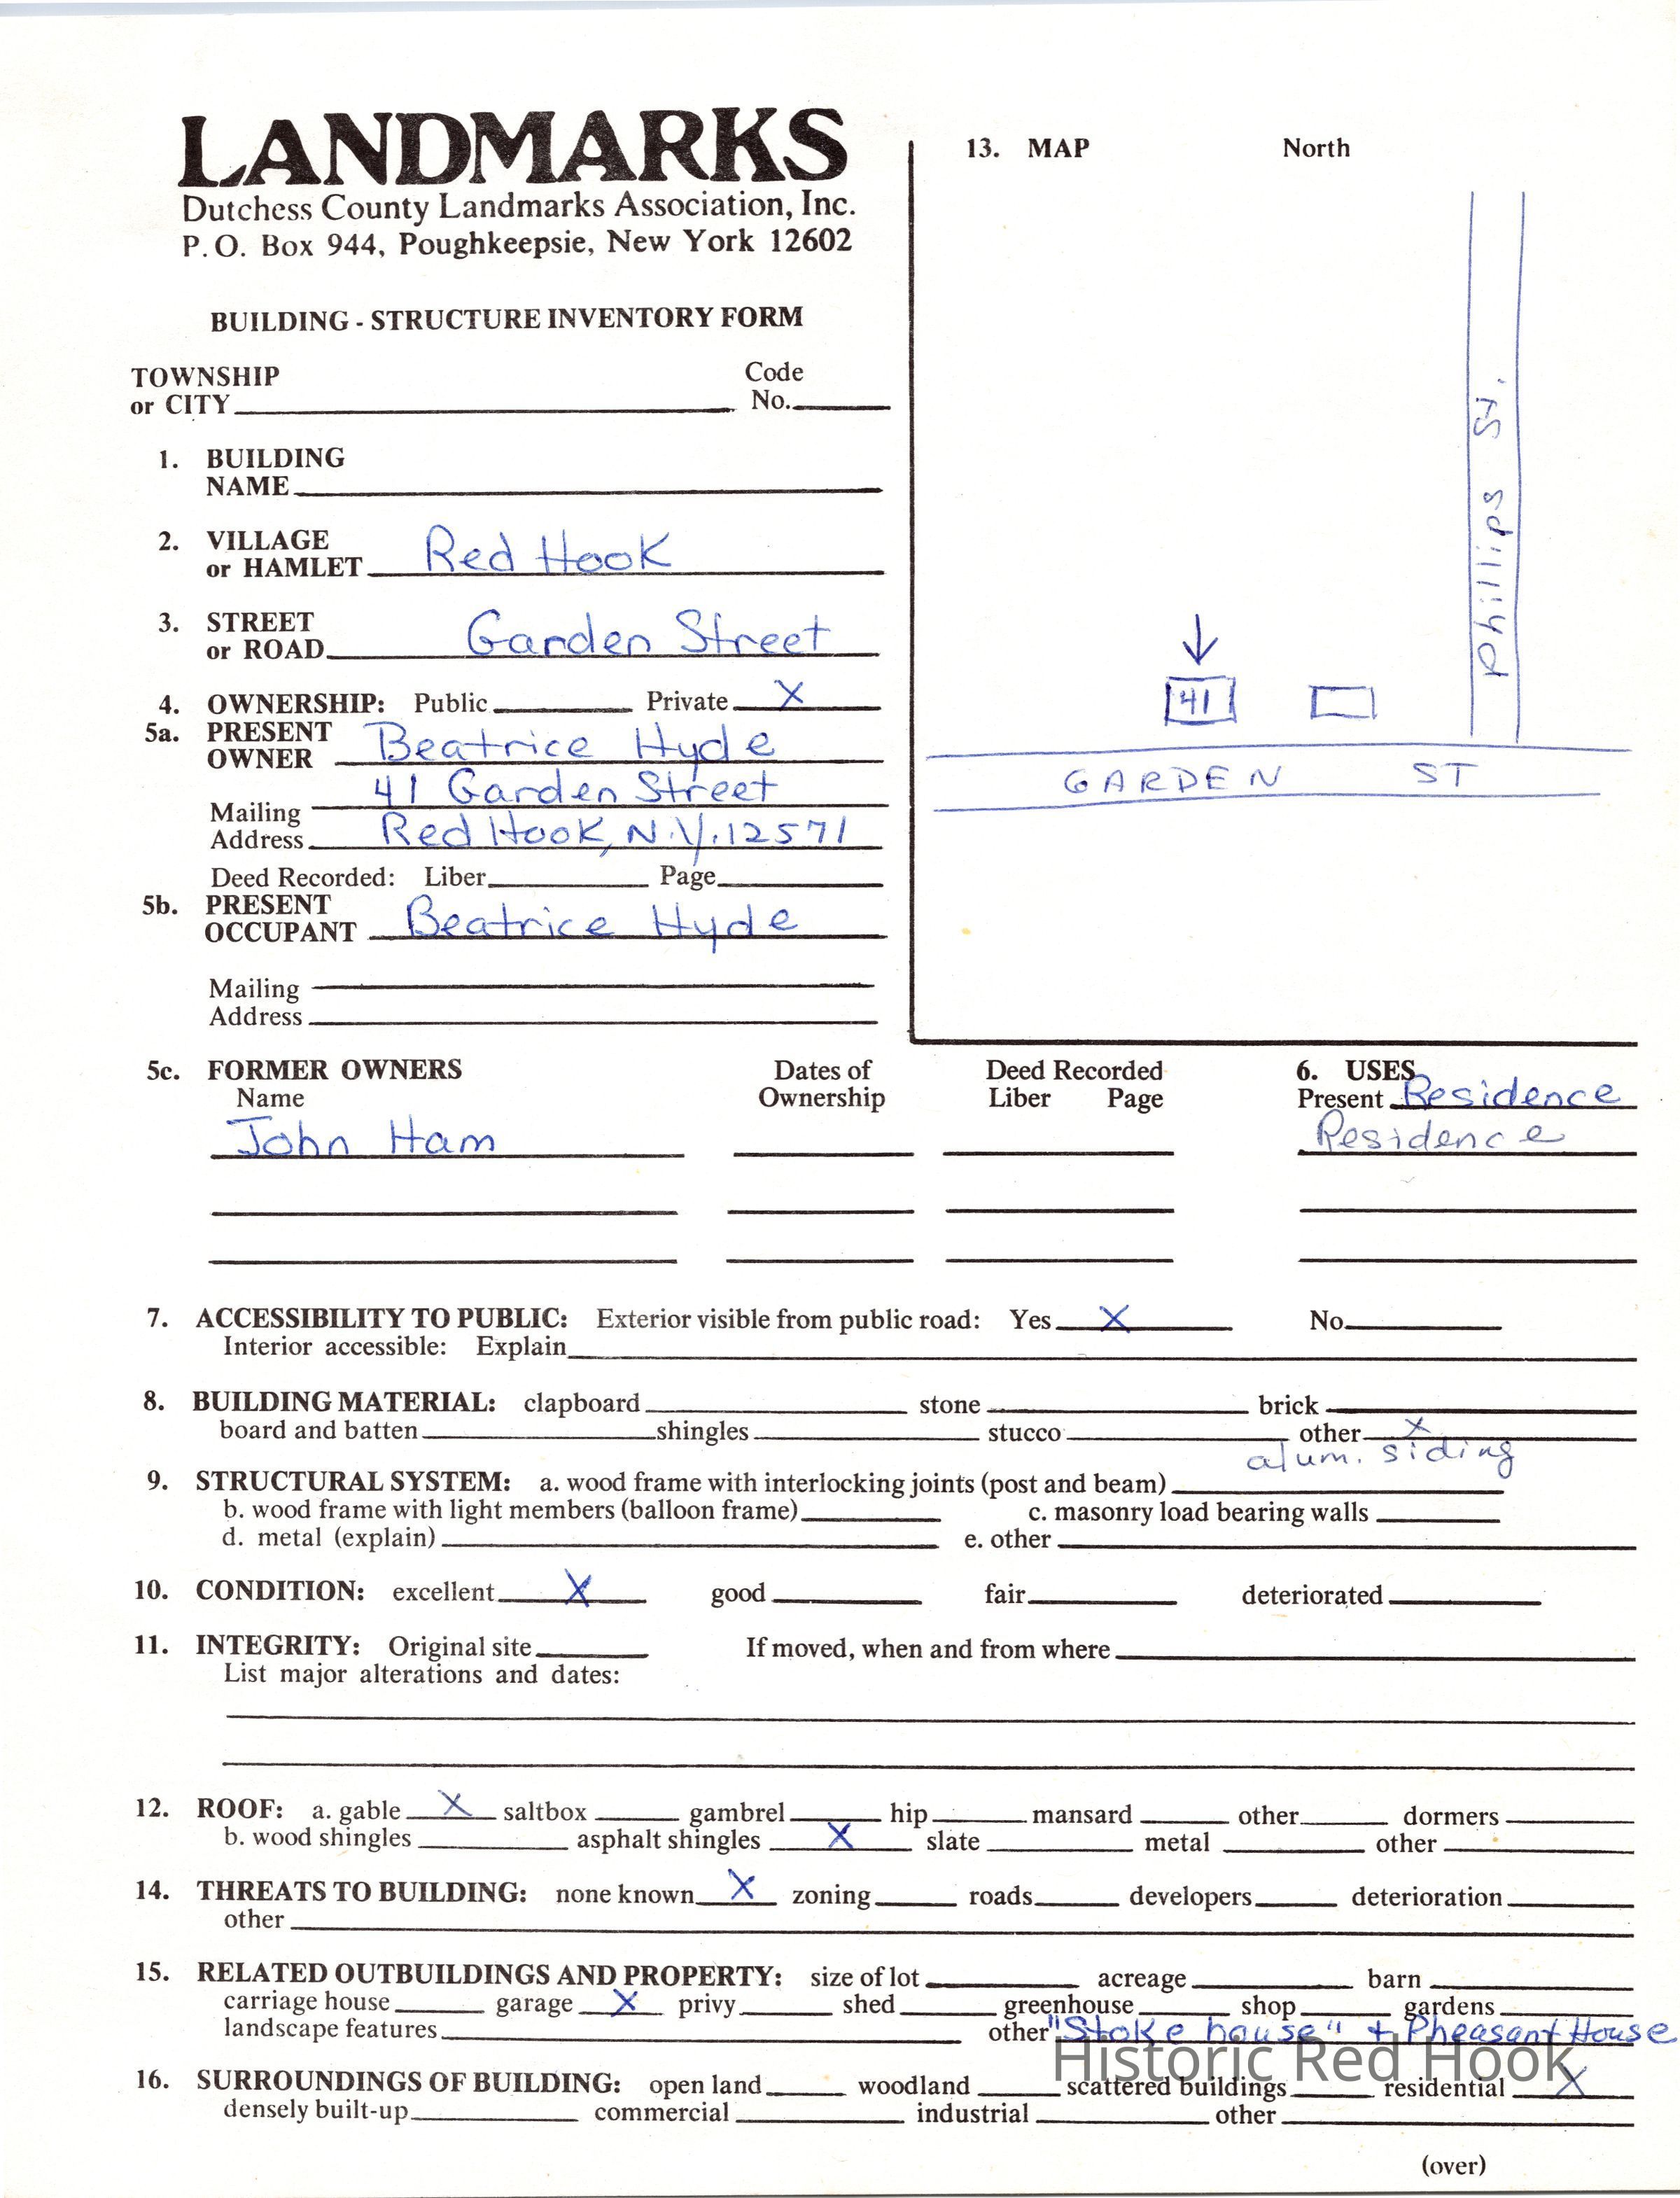 LANDMARKS
Dutchess County Landmarks Association, Inc.
P.O. Box 944, Poughkeepsie, New York 12602
BUILDING - STRUCTURE INVENTORY FORM
TOWNSHIP Code
or CITY No.
1. BUILDING
NAME
2. VILLAGE
or HAMLET Red Hook
3. STREET
or ROAD Garden Street
4. OWNERSHIP: Public Private X
5a. PRESENT
OWNER Beatrice Hyde
41 Garden Street
Mailing
Address Red Hook, N.Y. 12571
Deed Recorded: Liber Page
5b. PRESENT
OCCUPANT Beatrice Hyde
Mailing
Address
13. MAP North
Phillips St.
41
GARDEN ST
5c. FORMER OWNERS Dates of Deed Recorded 6. USES
Name Ownership Liber Page Present Residence
John Ham Residence
7. ACCESSIBILITY TO PUBLIC: Exterior visible from public road: Yes X No
Interior accessible: Explain
8. BUILDING MATERIAL: clapboard stone brick
board and batten shingles stucco other X
alum. siding
9. STRUCTURAL SYSTEM: a. wood frame with interlocking joints (post and beam)
b. wood frame with light members (balloon frame) c. masonry load bearing walls
d. metal (explain) e. other
10. CONDITION: excellent X good fair deteriorated
11. INTEGRITY: Original site If moved, when and from where
List major alterations and dates:
12. ROOF: a. gable X saltbox gambrel hip mansard other dormers
b. wood shingles asphalt shingles X slate metal other
14. THREATS TO BUILDING: none known X zoning roads developers deterioration
other
15. RELATED OUTBUILDINGS AND PROPERTY: size of lot acreage barn
carriage house garage X privy shed greenhouse shop gardens
landscape features other "Stoke house" + Pheasant House
Historic Red Hook
16. SURROUNDINGS OF BUILDING: open land woodland scattered buildings residential X
densely built-up commercial industrial other
(over)